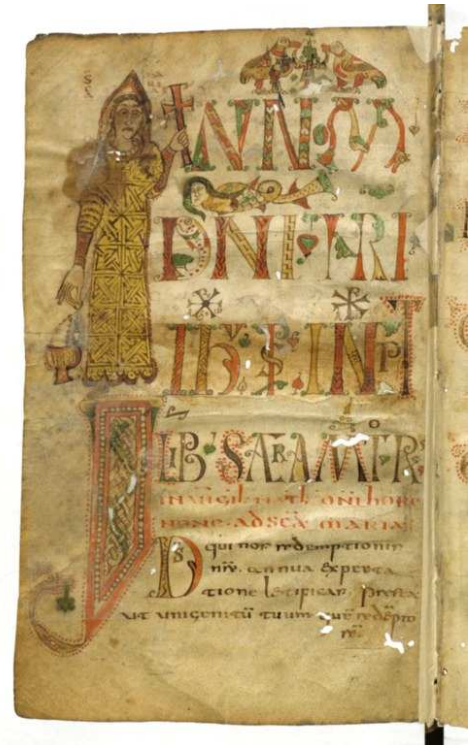 NN·M
DNI·TRI
LIB·SACRAM
IN VIGIL NATL DNI HORA
NONA·AD SCA MARIA
DS qui nos redemptionis
nre annua expecta
tione letificas, presta
ut unigenitu tuum que redepto
re